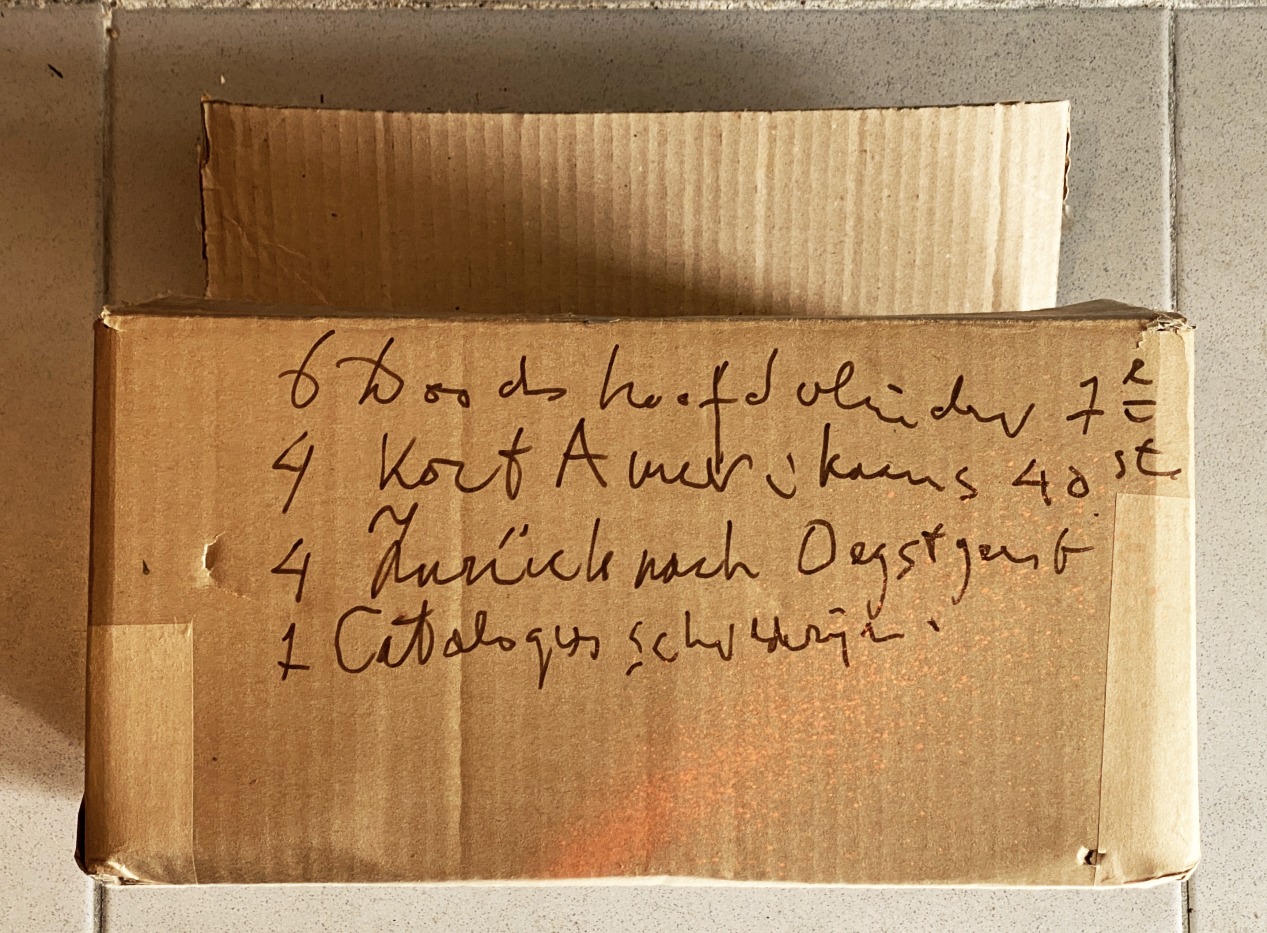 6 Doodshoofdvlinder 7e
4 Kort Amerikaans 40st
4 Zurück nach Oegstgeest
1 Catalogus